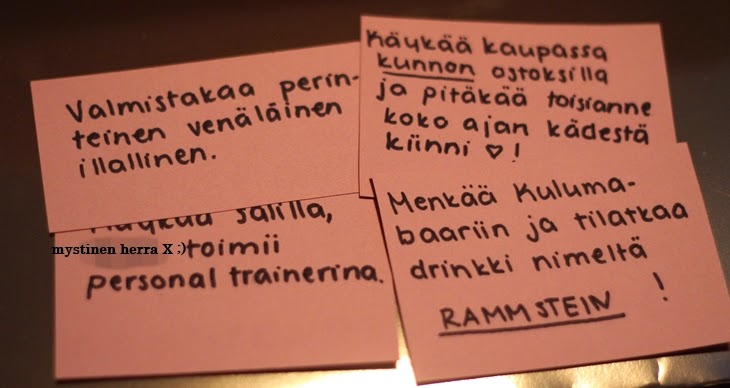 Valmistakaa perin-
teinen venäläinen
illallinen.
Käykää kaupassa
kunnon ostoksilla
ja pitäkää toisianne
koko ajan kädestä
kiinni ♡!
Käykää salilla,
mystinen herra X ;) toimii
personal trainerina.
Menkää Kuluma-
baariin ja tilatkaa
drinkki nimeltä
RAMMSTEIN !